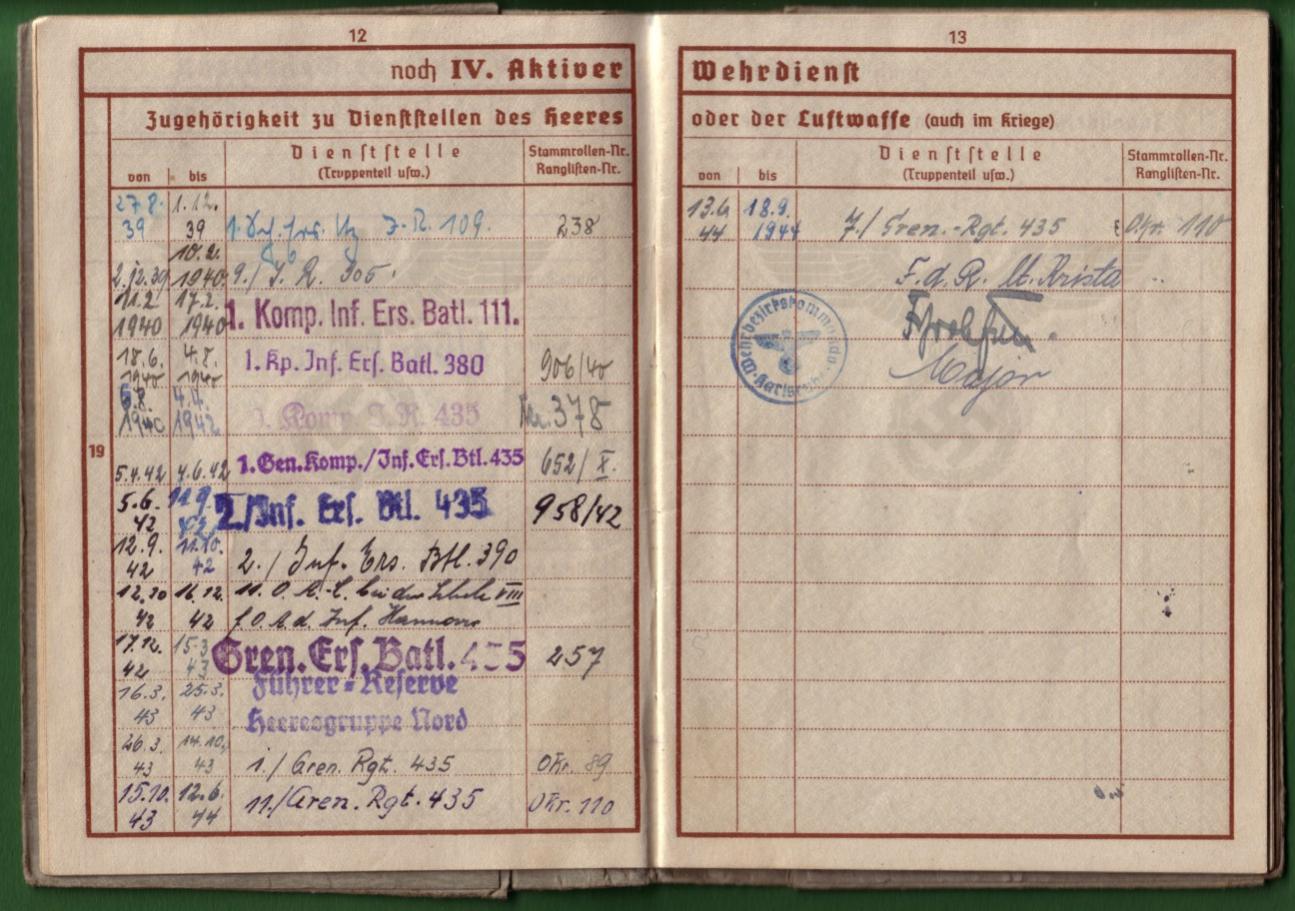 12
noch IV. Aktiver
Zugehörigkeit zu Dienststellen des Heeres
Dienststelle
(Truppenteil usw.)
Stammrollen-Nr.
Ranglisten-Nr.
von bis
27.8. 1.12.
39 39 J.R. 109. 238
10.2.
2.12.39 1940 9./ J.R. 305.
11.2. 17.2.
1940 1940 1. Komp. Inf. Ers. Batl. 111.
18.6. 4.8.
1940 1940 1. Kp. Inf. Ers. Batl. 380 906/40
4.4.
1940 1942 Komp. J.R. 435 Nr. 378
19
5.4.42 4.6.42 1. Gen. Komp./Inf. Ers. Btl. 435 652/X.
5.6. 11.9.
42 42 2./Inf. Ers. Btl. 435 958/42
12.9. 11.10.
42 42 2./ Inf. Ers. Btl. 390
12.10 16.12. 11. O.A.L. bei der Schule VIII
42 42 f. O.A. d. Inf. Hannover
17.12. 15.3
42 43 Gren. Ers. Batl. 435 257
16.3. 25.3. Führer-Reserve
43 43 Heeresgruppe Nord
26.3. 14.10.
43 43 1./ Gren. Rgt. 435 OKr. 89
15.10. 12.6.
43 44 11./Gren. Rgt. 435 OKr. 110
13
Wehrdienst
oder der Luftwaffe (auch im Kriege)
Dienststelle
(Truppenteil usw.)
Stammrollen-Nr.
Ranglisten-Nr.
von bis
13.6 18.9.
44 1944 7./ Gren.-Rgt. 435 OKr. 110
F.d.R. Lt. Krista
Major
Wehrbezirkskommando Karlsruhe